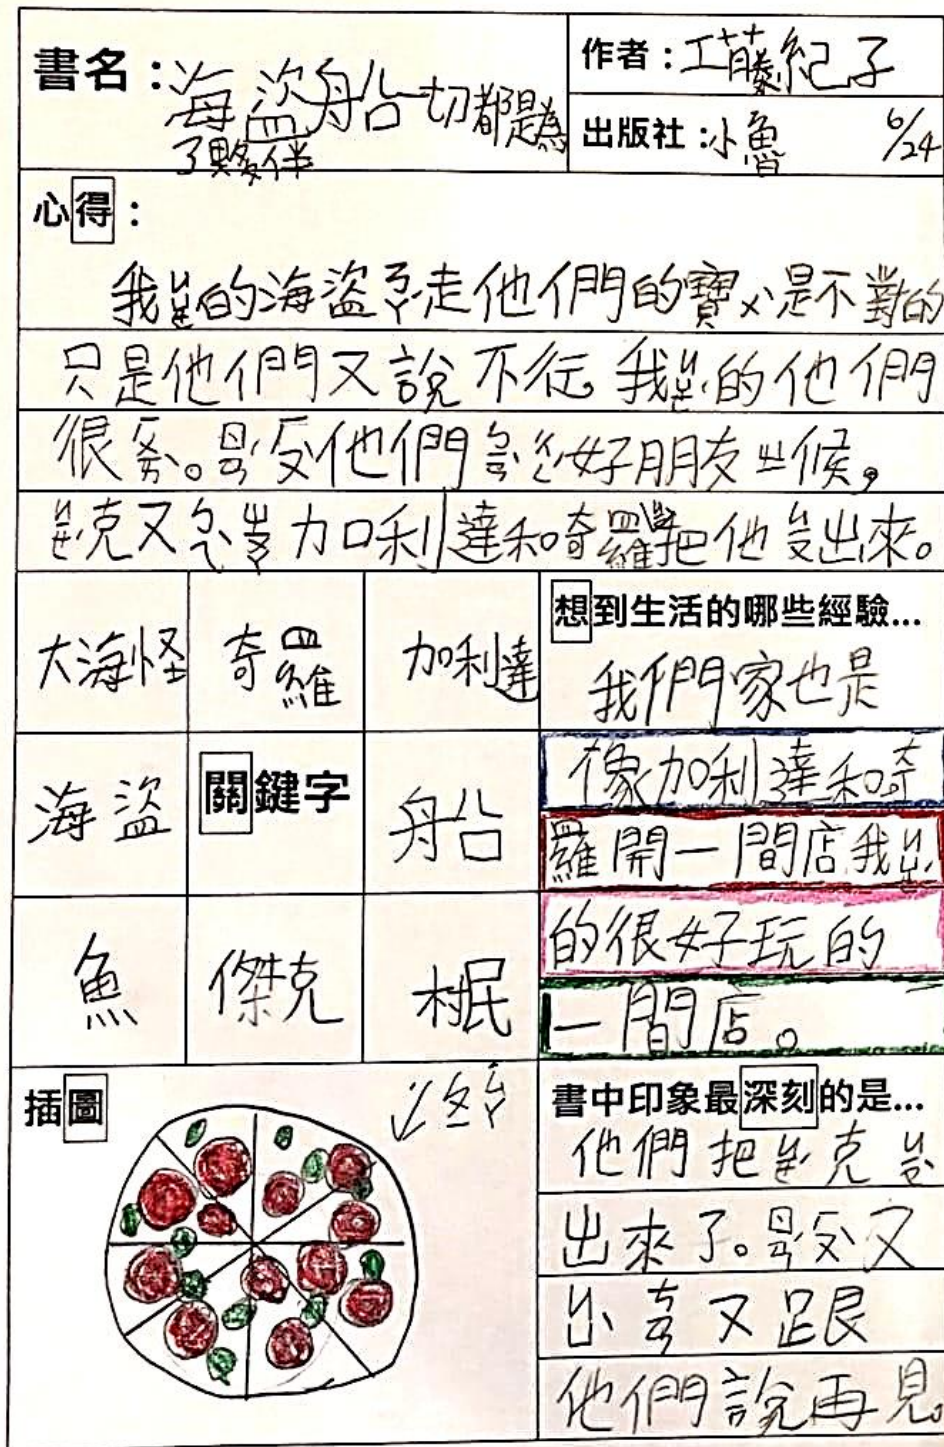 書名：海盜船一切都是為
了夥伴
作者：工藤紀子
出版社：小魯 6/24
心得：
我ㄐㄩㄝˊ的海盜ㄋㄚˊ走他們的寶ㄨˋ是不對的
只是他們又說不行。我ㄐㄩㄝˊ的他們
很
他們 好朋友 候。
克又 加利達和奇羅 把他 出來。
大海怪 奇羅 加利達
海盜 關鍵字 船
魚 傑克 村民
想到生活的哪些經驗...
我們家也是
像加利達和奇
羅開一間店我ㄐㄩㄝˊ
的很好玩的
一間店。
插圖
書中印象最深刻的是...
他們把ㄐㄧㄝˊ克ㄐㄧㄡˋ
出來了。 又
又跟
他們說再見。